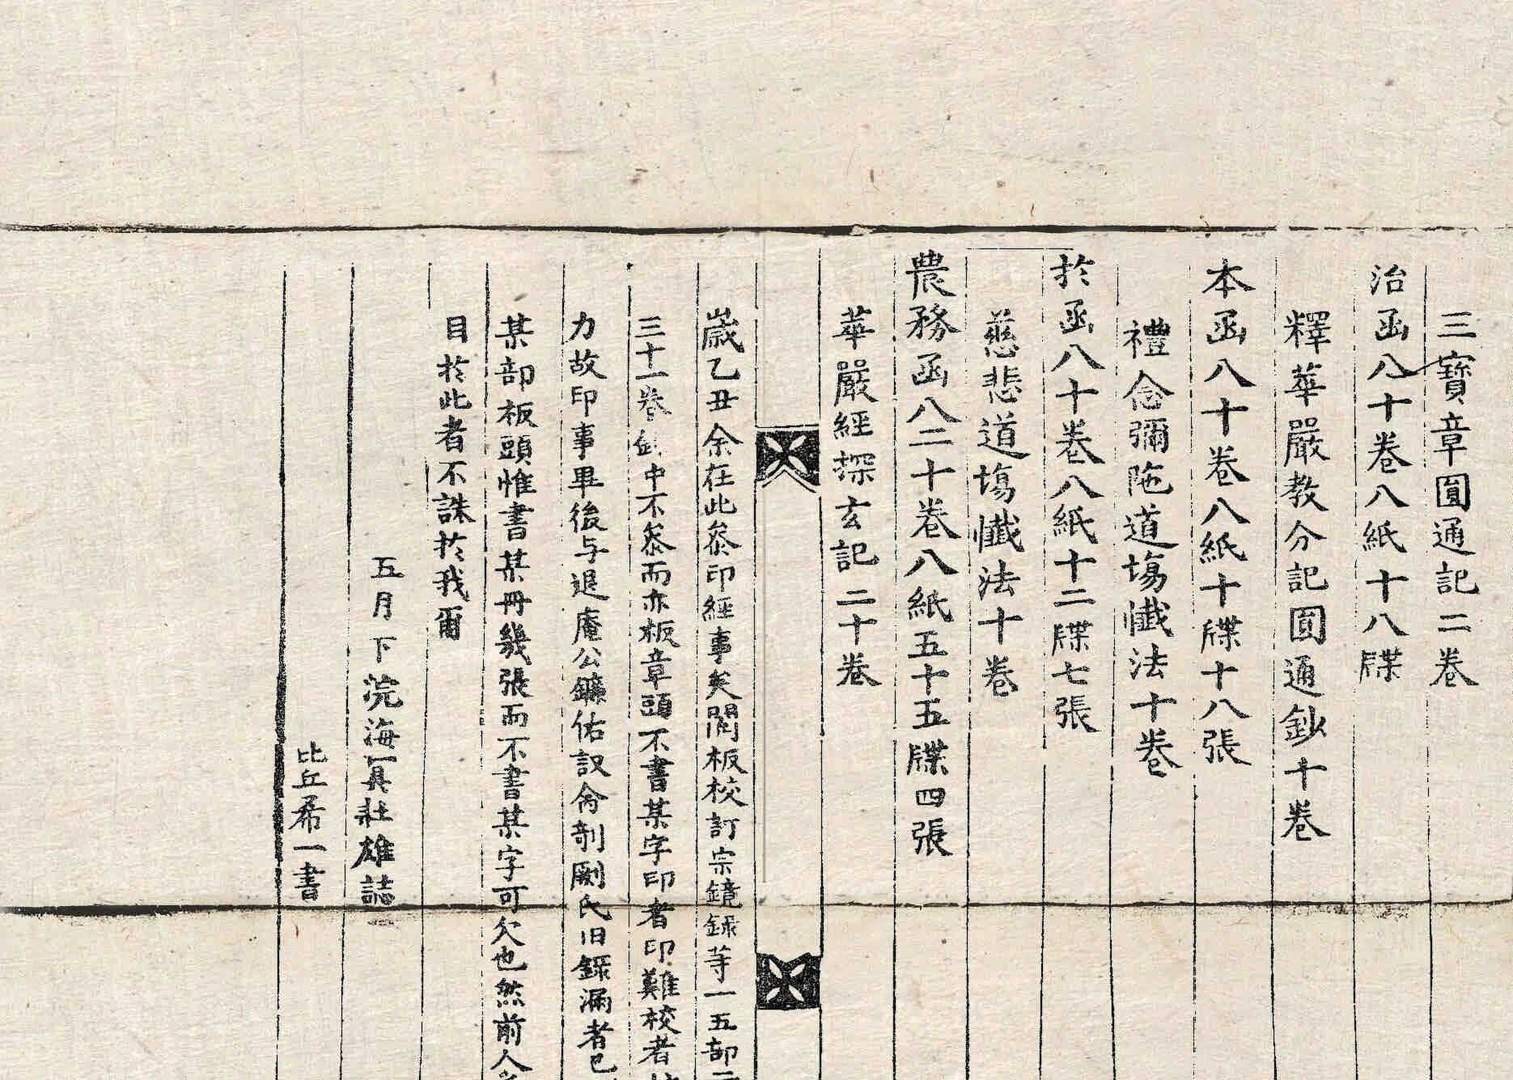 三寶章圓通記二卷
治函八十卷八紙十八牒
釋華嚴教分記圓通鈔十卷
本函八十卷八紙十牒十八張
禮念彌陁道場懺法十卷
於函八十卷八紙十二牒七張
慈悲道場懺法十卷
農務函八二十卷八紙五十五牒四張
華嚴經探玄記二十卷
歲乙丑余在此叅印經事矣閱板校訂宗鏡錄等一五部二
三十一卷 中不叅而亦板章頭不書某字印者印難校者
力故印事畢後与退庵公鑢佑 剞劂氏旧錄漏者已
某部板頭惟書某冊幾張而不書某字可欠也然前人
目於此者不誅於我爾
五月下浣海冥壯雄誌
比丘希一書